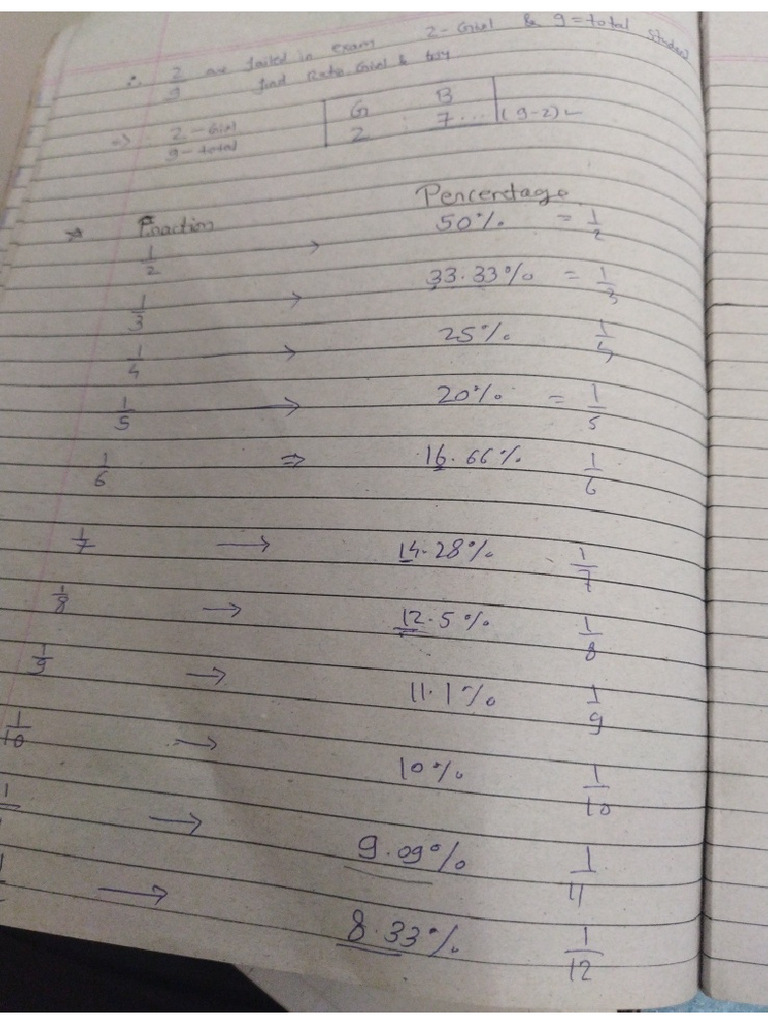 ∴ 2/9 are failed in exam 2 - Girl & 9 = total student
find Ratio Girl & boy
⇒ 2 - Girl / 9 - total G B
2 : 7 ... (9-2)
* Fraction Percentage
1/2 → 50% = 1/2
1/3 → 33.33% = 1/3
1/4 → 25% 1/4
1/5 → 20% = 1/5
1/6 ⇒ 16.66% 1/6
1/7 → 14.28% 1/7
1/8 → 12.5% 1/8
1/9 → 11.1% 1/9
1/10 → 10% 1/10
→ 9.09% 1/11
→ 8.33% 1/12